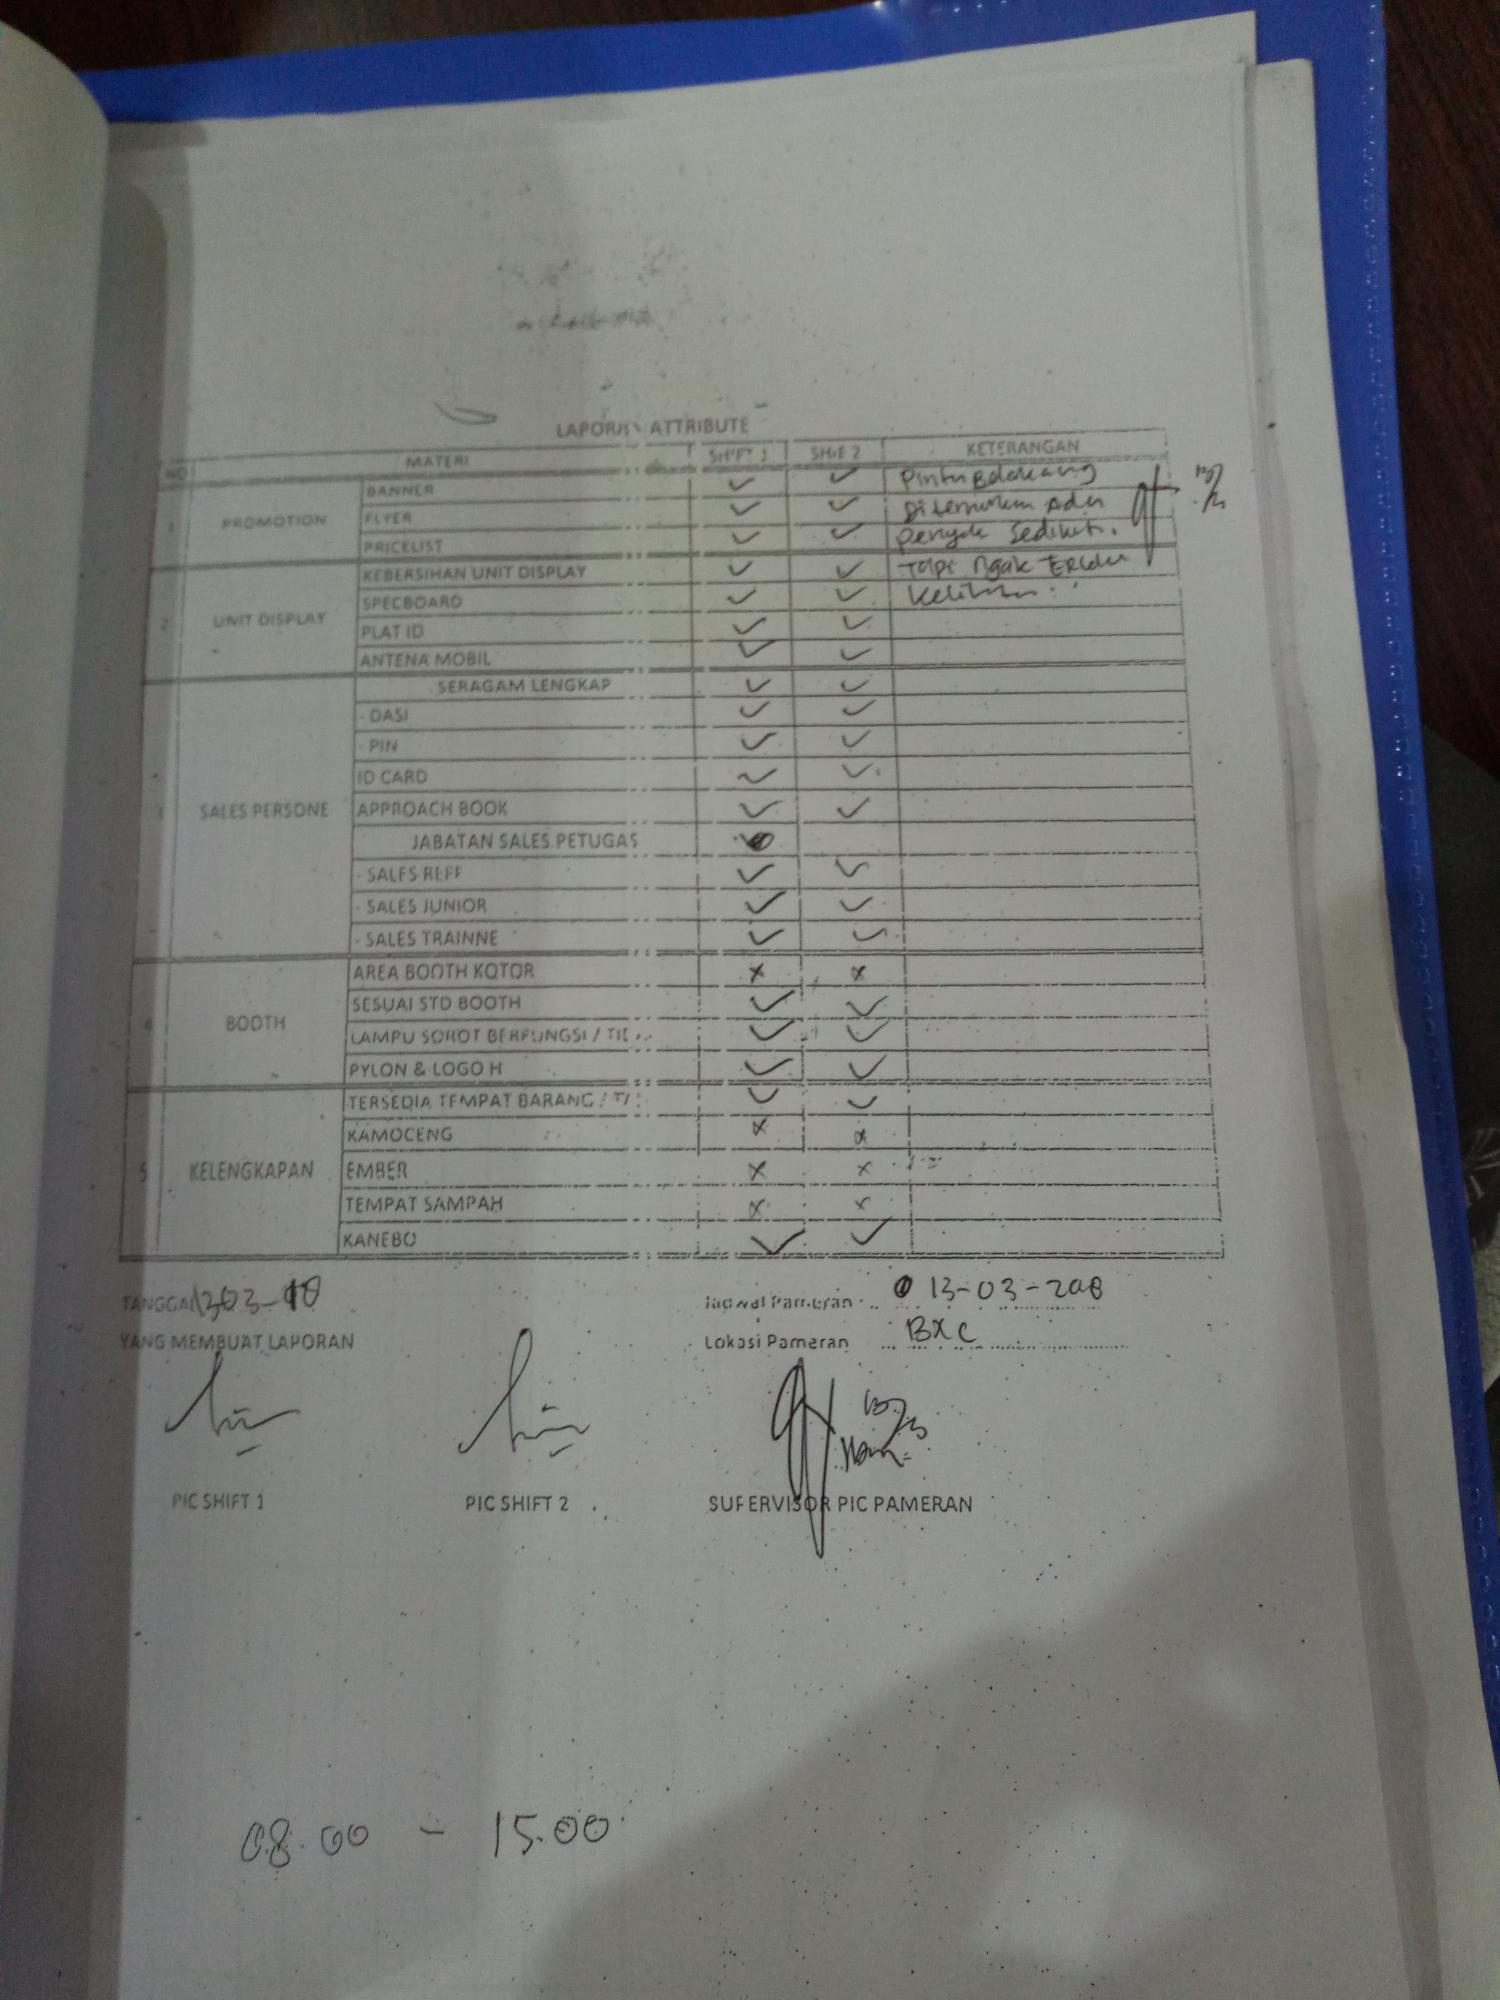 LAPORAN ATTRIBUTE
NO MATERI SHIFT 1 SHIF 2 KETERANGAN
1 PROMOTION BANNER ✓ ✓ Pintu Belakang
FLYER ✓ ✓ Ditemukan Ada
PRICELIST ✓ ✓ penyok Sedikit.
2 UNIT DISPLAY KEBERSIHAN UNIT DISPLAY ✓ ✓ Tapi Ngak
SPECBOARD ✓ ✓
PLAT ID ✓ ✓
ANTENA MOBIL ✓ ✓
3 SALES PERSONE SERAGAM LENGKAP ✓ ✓
- DASI ✓ ✓
- PIN ✓ ✓
ID CARD ✓ ✓
APPROACH BOOK ✓ ✓
JABATAN SALES PETUGAS
- SALES REFF ✓ ✓
- SALES JUNIOR ✓ ✓
- SALES TRAINNE ✓ ✓
4 BOOTH AREA BOOTH KOTOR x x
SESUAI STD BOOTH ✓ ✓
LAMPU SOROT BERFUNGSI / ✓ ✓
PYLON & LOGO H ✓ ✓
5 KELENGKAPAN TERSEDIA TEMPAT BARANG / ✓ ✓
KAMOCENG x x
EMBER x x
TEMPAT SAMPAH x x
KANEBO ✓ ✓
TANGGAL 1303-18 Jadwal Pameran 13-03-2018
YANG MEMBUAT LAPORAN Lokasi Pameran BXC
PIC SHIFT 1 PIC SHIFT 2 SUPERVISOR PIC PAMERAN
08.00 - 15.00